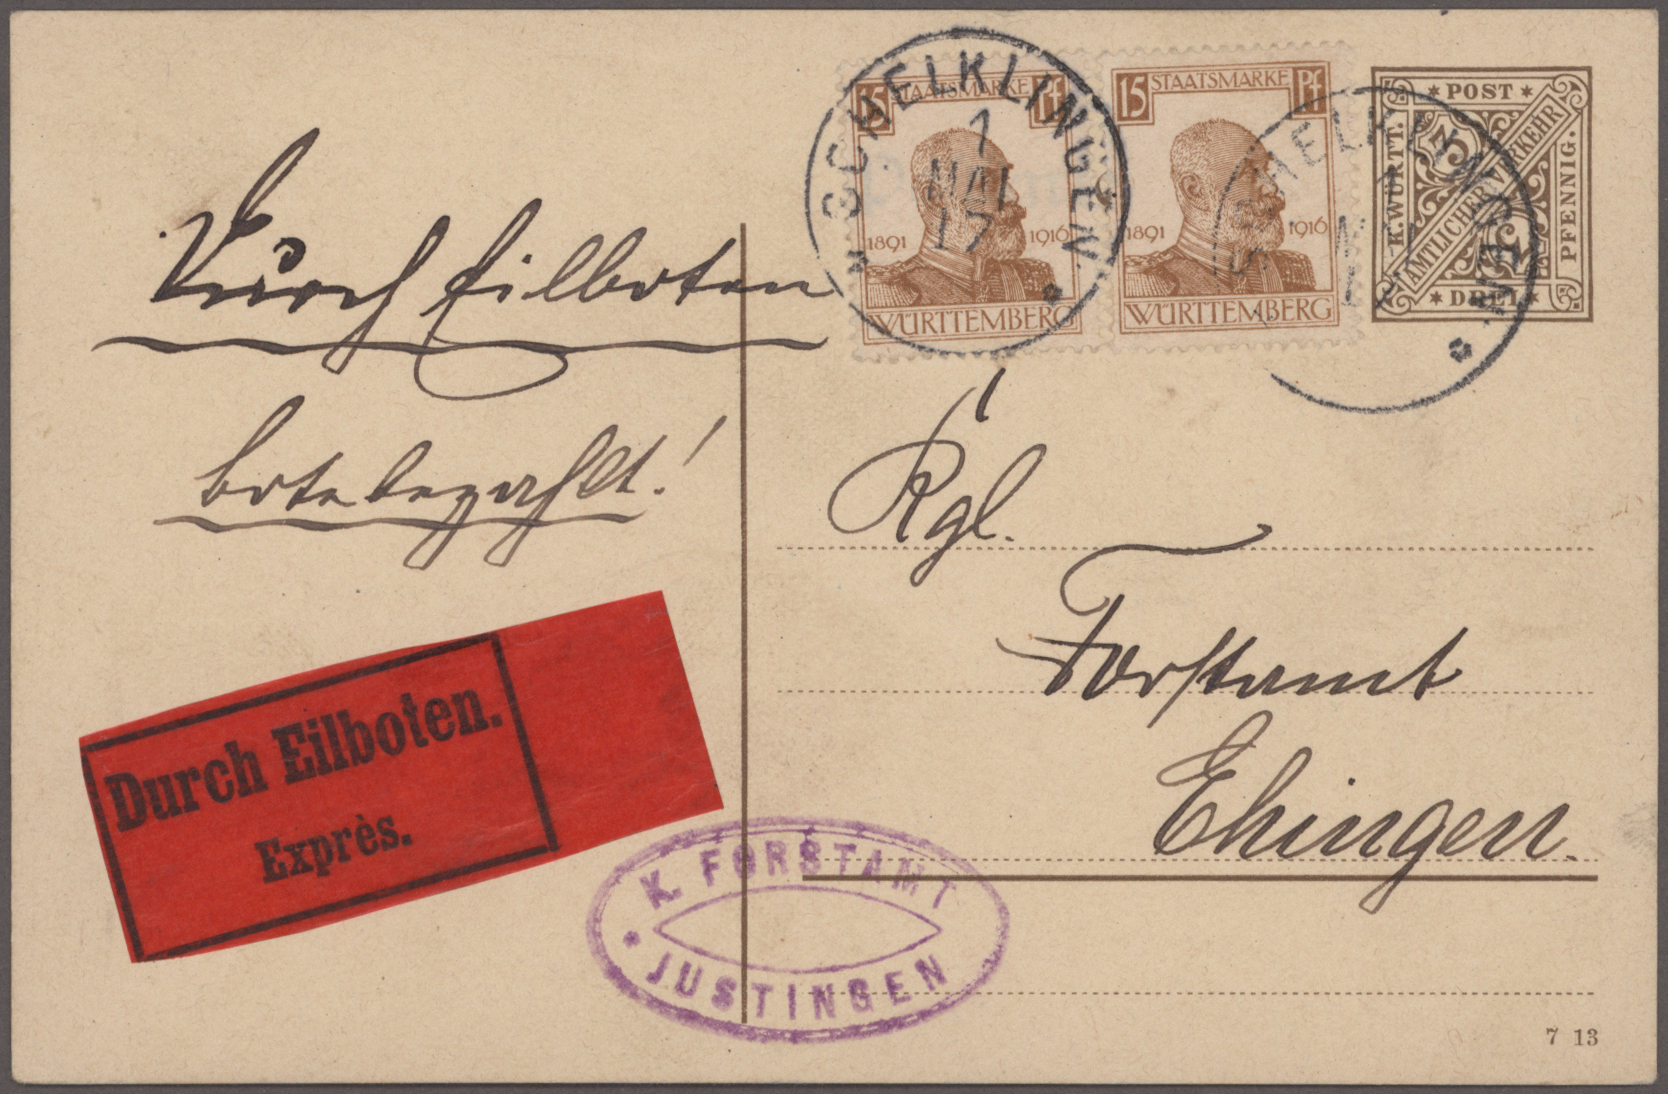 15 STAATSMARKE Pf
1891 1916
WÜRTTEMBERG
15 STAATSMARKE Pf
1891 1916
WÜRTTEMBERG
SCHELKLINGEN
1
MAI
17
SCHELKLINGEN
* POST *
K. WÜRTT.
AMTLICHER VERKEHR
3
PFENNIG.
* DREI *
Durch Eilboten
bote bezahlt!
Kgl.
Forstamt
Ehingen.
Durch Eilboten.
Exprès.
K. FORSTAMT
* JUSTINGEN
7 13